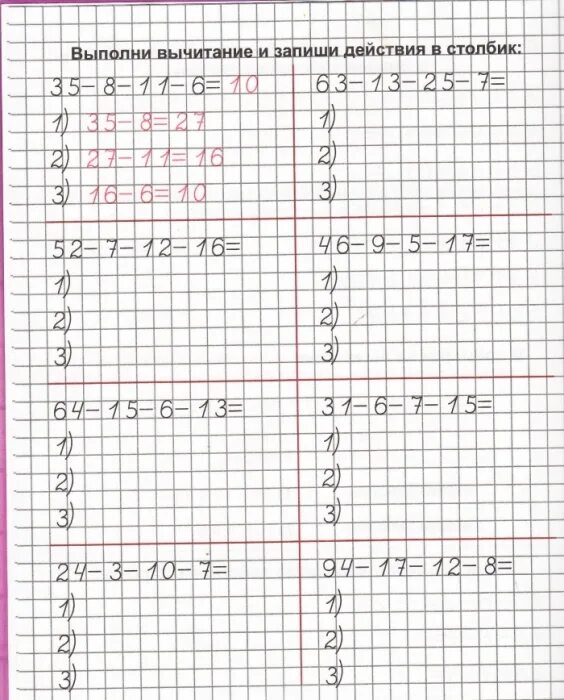 Выполни вычитание и запиши действия в столбик:
35-8-11-6=10
1) 35-8=27
2) 27-11=16
3) 16-6=10
63-13-25-7=
1)
2)
3)
52-7-12-16=
1)
2)
3)
46-9-5-17=
1)
2)
3)
64-15-6-13=
1)
2)
3)
31-6-7-15=
1)
2)
3)
24-3-10-7=
1)
2)
3)
94-17-12-8=
1)
2)
3)